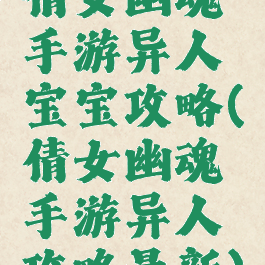 倩女幽魂
手游异人
宝宝攻略(
倩女幽魂
手游异人
攻略最新)